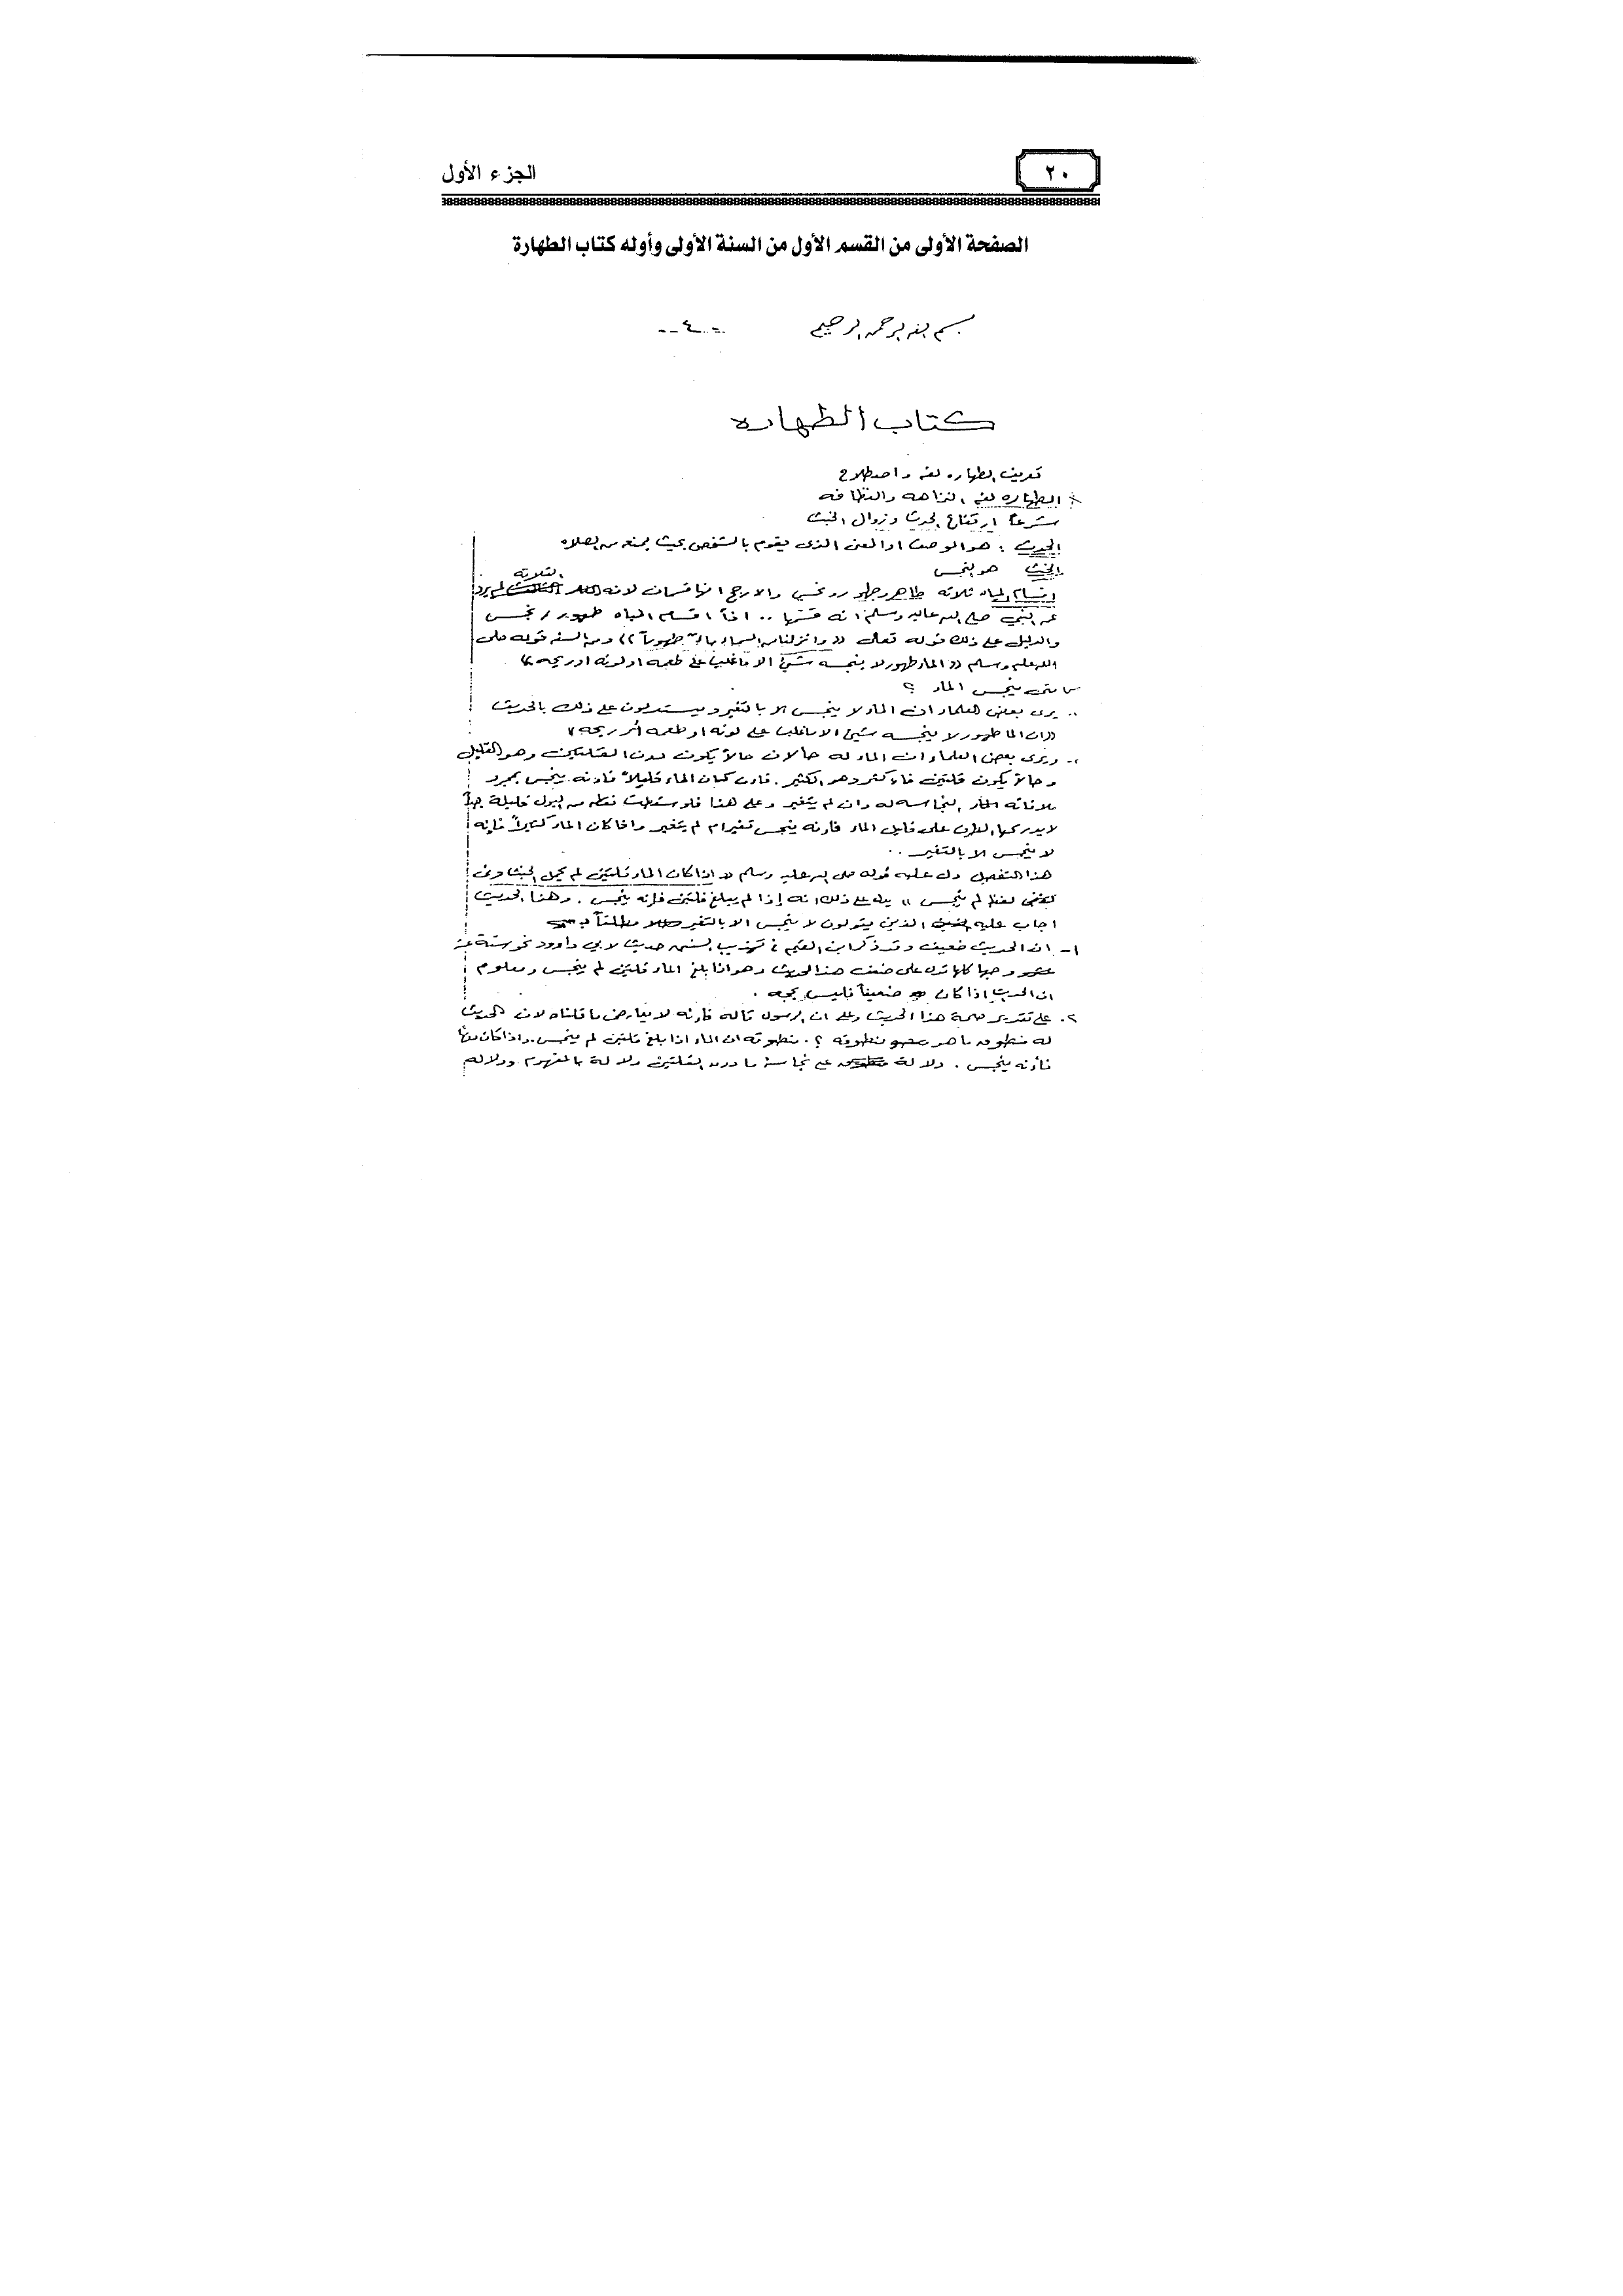 ٢٠
الجزء الأول
الصفحة الأولى من القسم الأول من السنة الأولى وأوله كتاب الطهارة
بسم الله الرحمن الرحيم
كتاب الطهاره
تعريف الطهاره لغه واصطلاح
الطهاره لغه النزاهه والنظافه
شرعاً ارتفاع الحدث وزوال الخبث
الحدث : هو الوصف او المعنى الذى يقوم بالشخص بحيث يمنعه من الصلاه
الخبث هو النجس
الثلاثه
اقسام المياه ثلاثه طاهر وطهور ونجس والارجح انها قسمان لانه لم يرد
عن النبي صلى الله عليه وسلم انه قسمها .. اذاً اقسام المياه طهور / نجس
والدليل على ذلك قوله تعالى (( وانزلنا من السماء ماءً طهوراً )) ومن السنه قوله صلى
الله عليه وسلم (( الماء طهور لا ينجسه شيئ الا ما غلب على طعمه او لونه او ريحه ))
س متى ينجس الماء ؟
يرى بعض العلماء ان الماء لا ينجس الا بالتغير ويستدلون على ذلك بالحديث
((ان الما طهور لا ينجسه شيئ الا ما غلب على لونه او طعمه أو ريحه ))
ويرى بعض العلماء ان الماء له حالان حالاً يكون دون القلتين وهو القليل
وحالاً يكون قلتين فاءكثر وهو الكثير . فاءن كان الماء قليلاً فاءنه ينجس بمجرد
ملاقاته النجاسه له وان لم يتغير وعلى هذا فلو سقطت نقطه من البول قليلة جداً
لا يدركها الطرف على قليل الماء فاءنه ينجس تغير ام لم يتغير واذا كان الماء كثيراً فإنه
لا ينجس الا بالتغير ..
هذا التفصيل دل عليه قوله صلى الله عليه وسلم (( اذا كان الماء قلتين لم يحمل الخبث وفى
لفظ لم ينجس )) يدل على ذلك انه إذا لم يبلغ قلتين فإنه ينجس . وهذا الحديث
اجاب عليه الذين يقولون لا ينجس الا بالتغير مطلقاً بـ
١- ان الحديث ضعيف وقد ذكر ابن القيم فى تهذيب السنن حديث لابي داوود نحو ستة عشر
وجهاً كلها تدل على ضعف هذا الحديث وهو اذا بلغ الماء قلتين لم ينجس ومعلوم
ان الحديث اذا كان ضعيفاً فليس بحجه .
٢. على تقدير صحة هذا الحديث وعلى ان الرسول قاله فاءنه لا يعارض ما قلناه لان الحديث
له منطوق ما هو منطوقه ؟ . منطوقه ان الماء اذا بلغ قلتين لم ينجس . واذا كان دونها
فأنه ينجس . دلالة على نجاسة ما دون القلتين دلالة بالمفهوم ودلاله